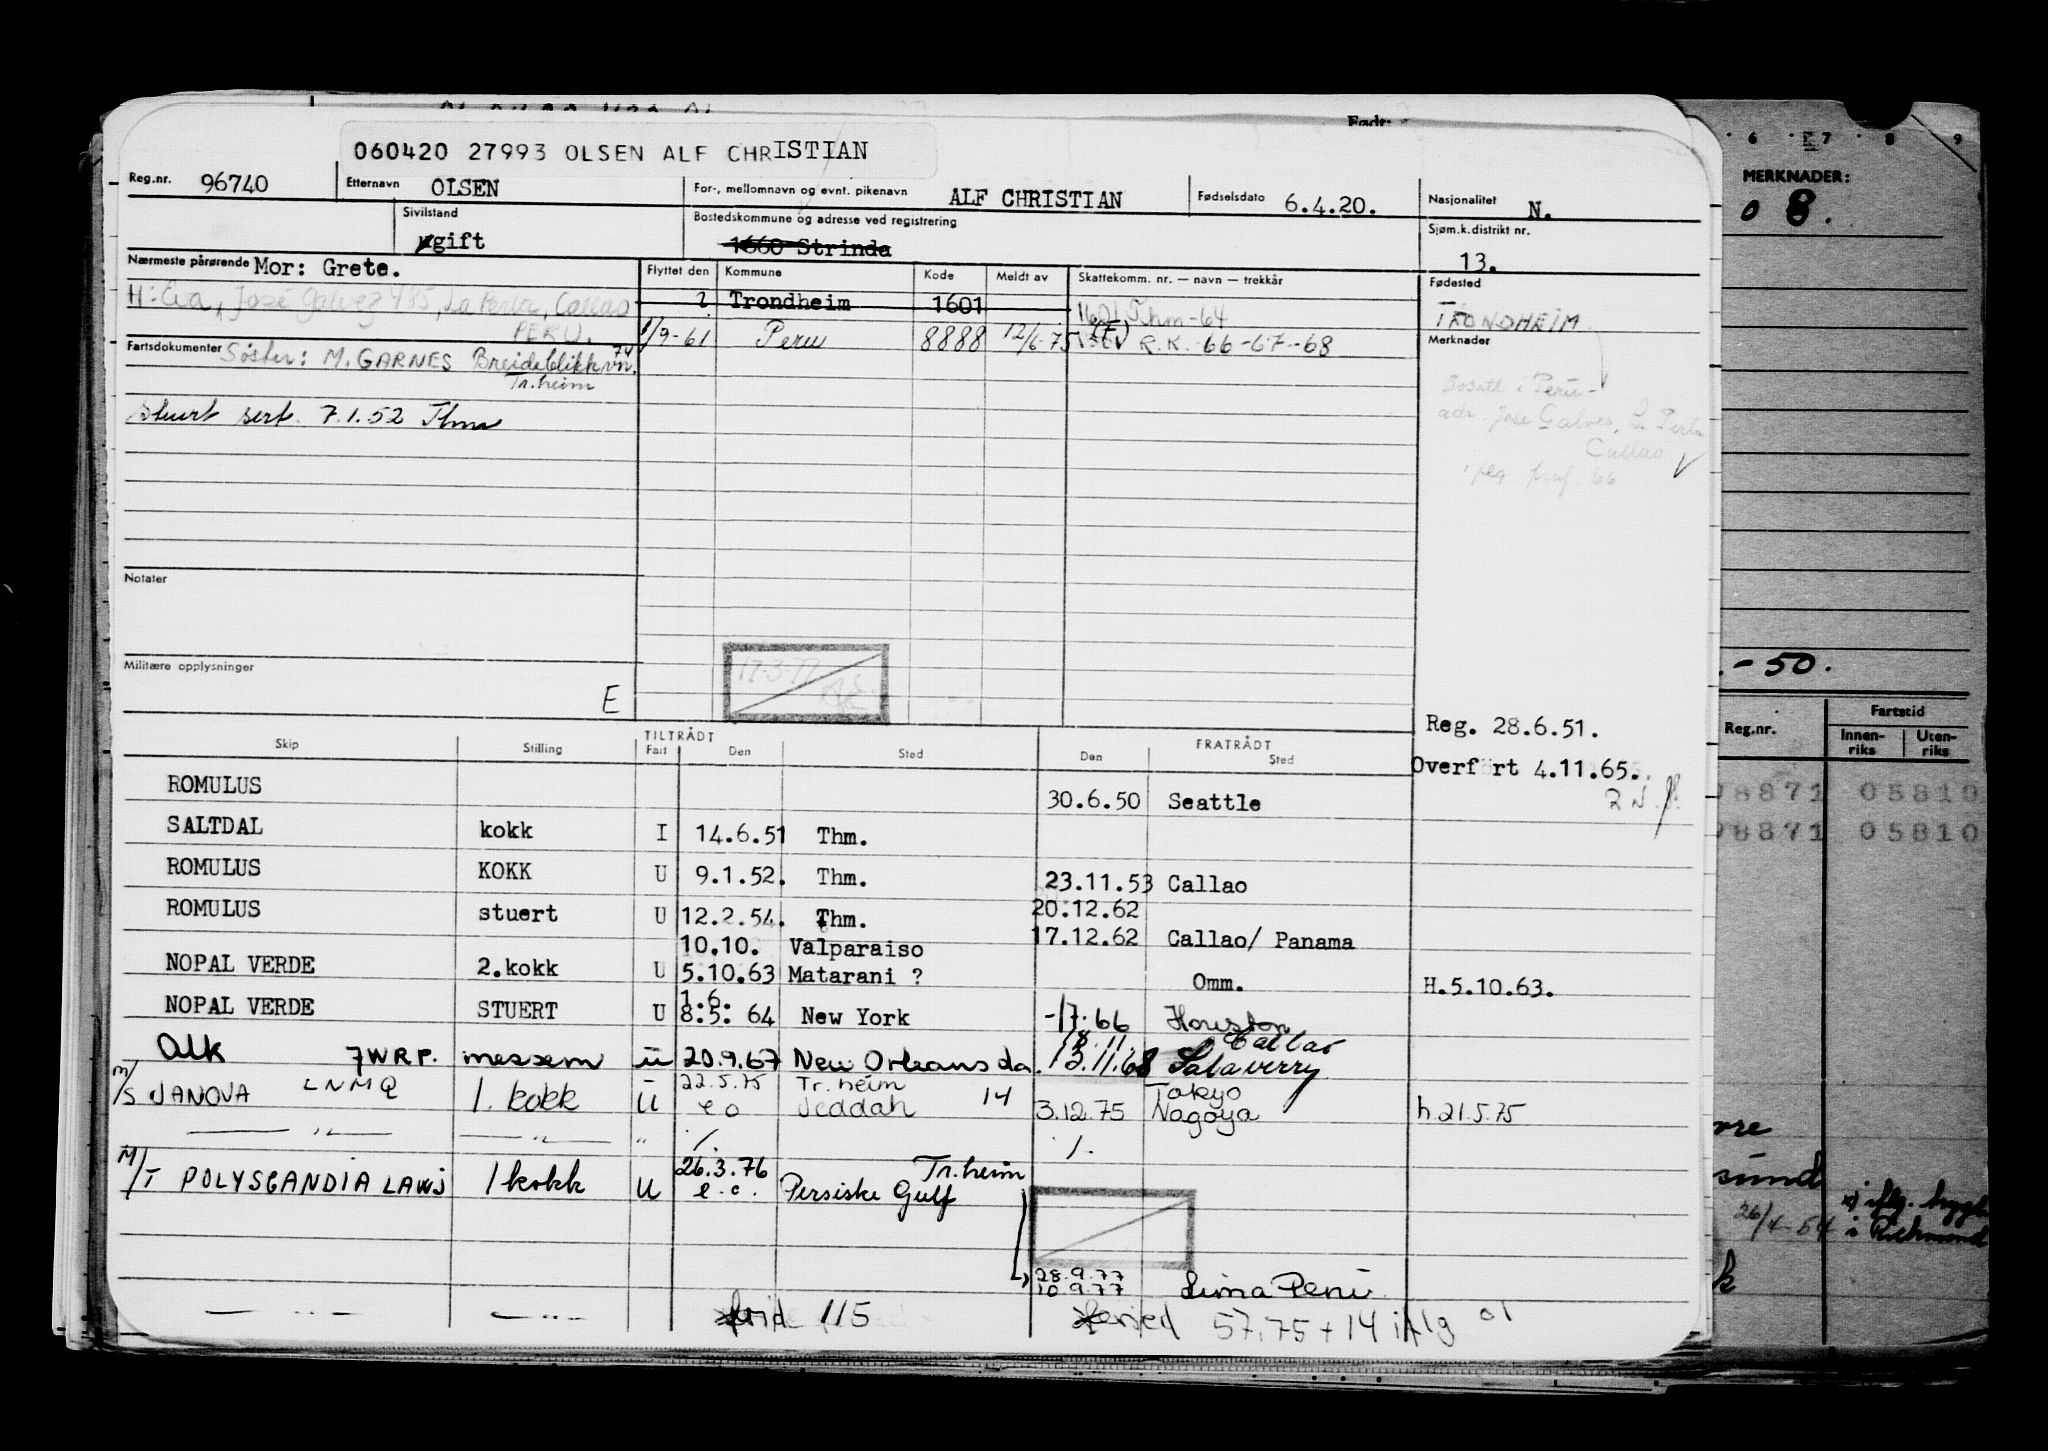 Født:
060420 27993 OLSEN ALF CHRISTIAN
Reg.nr. 96740 Etternavn OLSEN For-, mellomnavn og evnt. pikenavn ALF CHRISTIAN Fødselsdato 6.4.20. Nasjonalitet N.
Sivilstand gift Bostedskommune og adresse ved registrering 1660 Strinda Sjøm.k.distrikt nr. 13.
Nærmeste pårørende Mor: Grete. Flyttet den Kommune Kode Meldt av Skattekomm. nr. — navn — trekkår Fødested
H: Eva, José Galvez 485, La Perla, Callao ? Trondheim 1601 1601 Thm-64 TRONDHEIM
PERU. 1/9-61 Peru 8888 12/6-75 (F) R.K. 66-67-68 Merknader
Fartsdokumenter Søster: M. GARNES Breidablikkvn. 74
Tr.heim
Bosatt i Peru-
adr. Jose Galves, La Perla
Callao
Stuert sert. 7.1.52 Thm
Notater
Militære opplysninger
E
17-3-77
Reg. 28.6.51.
Overført 4.11.65.
TILTRÅDT FRATRÅDT
Skip Stilling Fart Den Sted Den Sted
ROMULUS 30.6.50 Seattle
SALTDAL kokk I 14.6.51 Thm.
ROMULUS KOKK U 9.1.52. Thm. 23.11.53 Callao
ROMULUS stuert U 12.2.54. Thm. 20.12.62
17.12.62 Callao/ Panama
10.10. Valparaiso
NOPAL VERDE 2.kokk U 5.10.63 Matarani ? Omm. H.5.10.63.
1.6.
NOPAL VERDE STUERT U 8.5. 64 New York -17.66 Houston
18.11. Callao
Alk 7WRP. messem u 20.9.67 New Orleans da. 13.11.68 Salaverry
22.5.75 Tr.heim Tokyo
M/S JANOVA LNMQ 1. kokk U e o Jeddah 14 3.12.75 Nagoya h.21.5.75
— " — — " — " /. /.
26.3.76 Tr.heim
M/T POLYSCANDIA LAWJ 1 kokk U e.o. Persiske Gulf
28.9.77
10.9.77 Lima Peru
— — — .. — 115 57,75 + 14 iflg 01
6 7 8 9
MERKNADER:
0 8.
.-50.
Reg.nr. Fartstid
Innen-riks Uten-riks
98871 05810
98871 05810
26/4-54 i Richmond